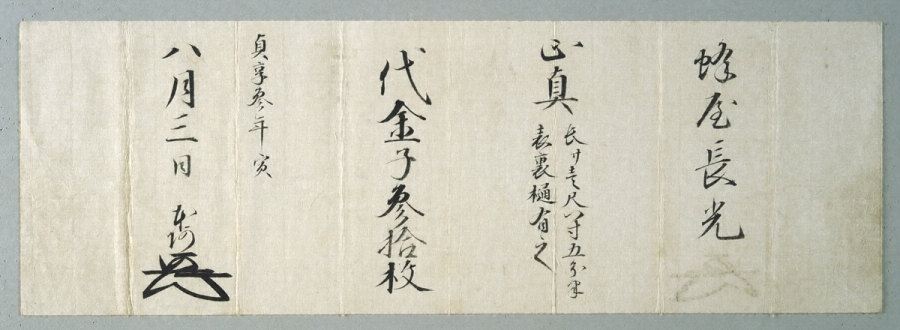 蜂屋長光
正真
長サ壱尺八寸五分半
表裏樋有之
代金子参拾枚
貞享参年寅
八月三日
本阿